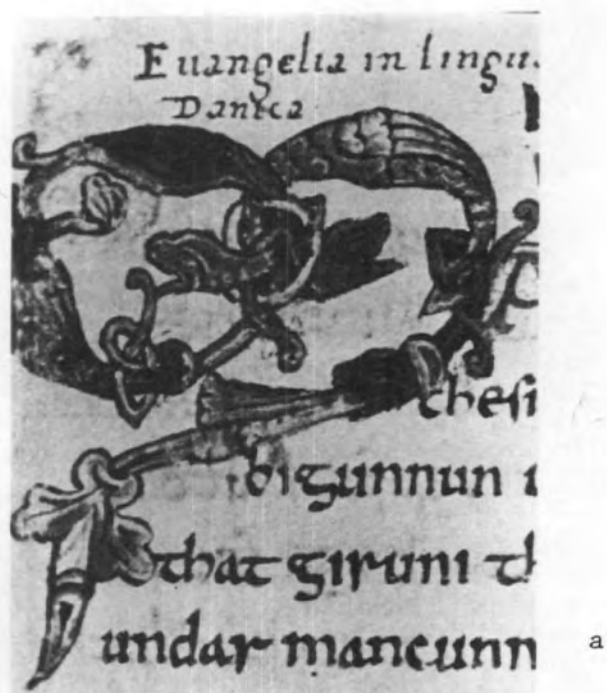 Euangelia in lingu
Danica
thesi
bigunnun
that giruni th
undar mancunn
a